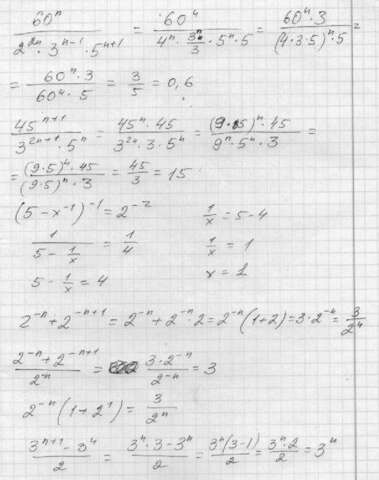 60ⁿ / (2²ⁿ · 3ⁿ⁻¹ · 5ⁿ⁺¹) = 60ⁿ / (4ⁿ · 3ⁿ/3 · 5ⁿ · 5) = 60ⁿ · 3 / ((4 · 3 · 5)ⁿ · 5) =
= 60ⁿ · 3 / (60ⁿ · 5) = 3/5 = 0,6
45ⁿ⁺¹ / (3²ⁿ⁺¹ · 5ⁿ) = 45ⁿ · 45 / (3²ⁿ · 3 · 5ⁿ) = (9 · 5)ⁿ · 45 / (9ⁿ · 5ⁿ · 3) =
= (9 · 5)ⁿ · 45 / ((9 · 5)ⁿ · 3) = 45/3 = 15
(5 - x⁻¹)⁻¹ = 2⁻² 1/x = 5 - 4
1 / (5 - 1/x) = 1/4 1/x = 1
5 - 1/x = 4 x = 1
2⁻ⁿ + 2⁻ⁿ⁺¹ = 2⁻ⁿ + 2⁻ⁿ · 2 = 2⁻ⁿ (1 + 2) = 3 · 2⁻ⁿ = 3/2ⁿ
(2⁻ⁿ + 2⁻ⁿ⁺¹) / 2ⁿ = 3 · 2⁻ⁿ / 2⁻ⁿ = 3
2⁻ⁿ (1 + 2¹) = 3/2ⁿ
(3ⁿ⁺¹ - 3ⁿ) / 2 = (3ⁿ · 3 - 3ⁿ) / 2 = 3ⁿ (3 - 1) / 2 = 3ⁿ · 2 / 2 = 3ⁿ